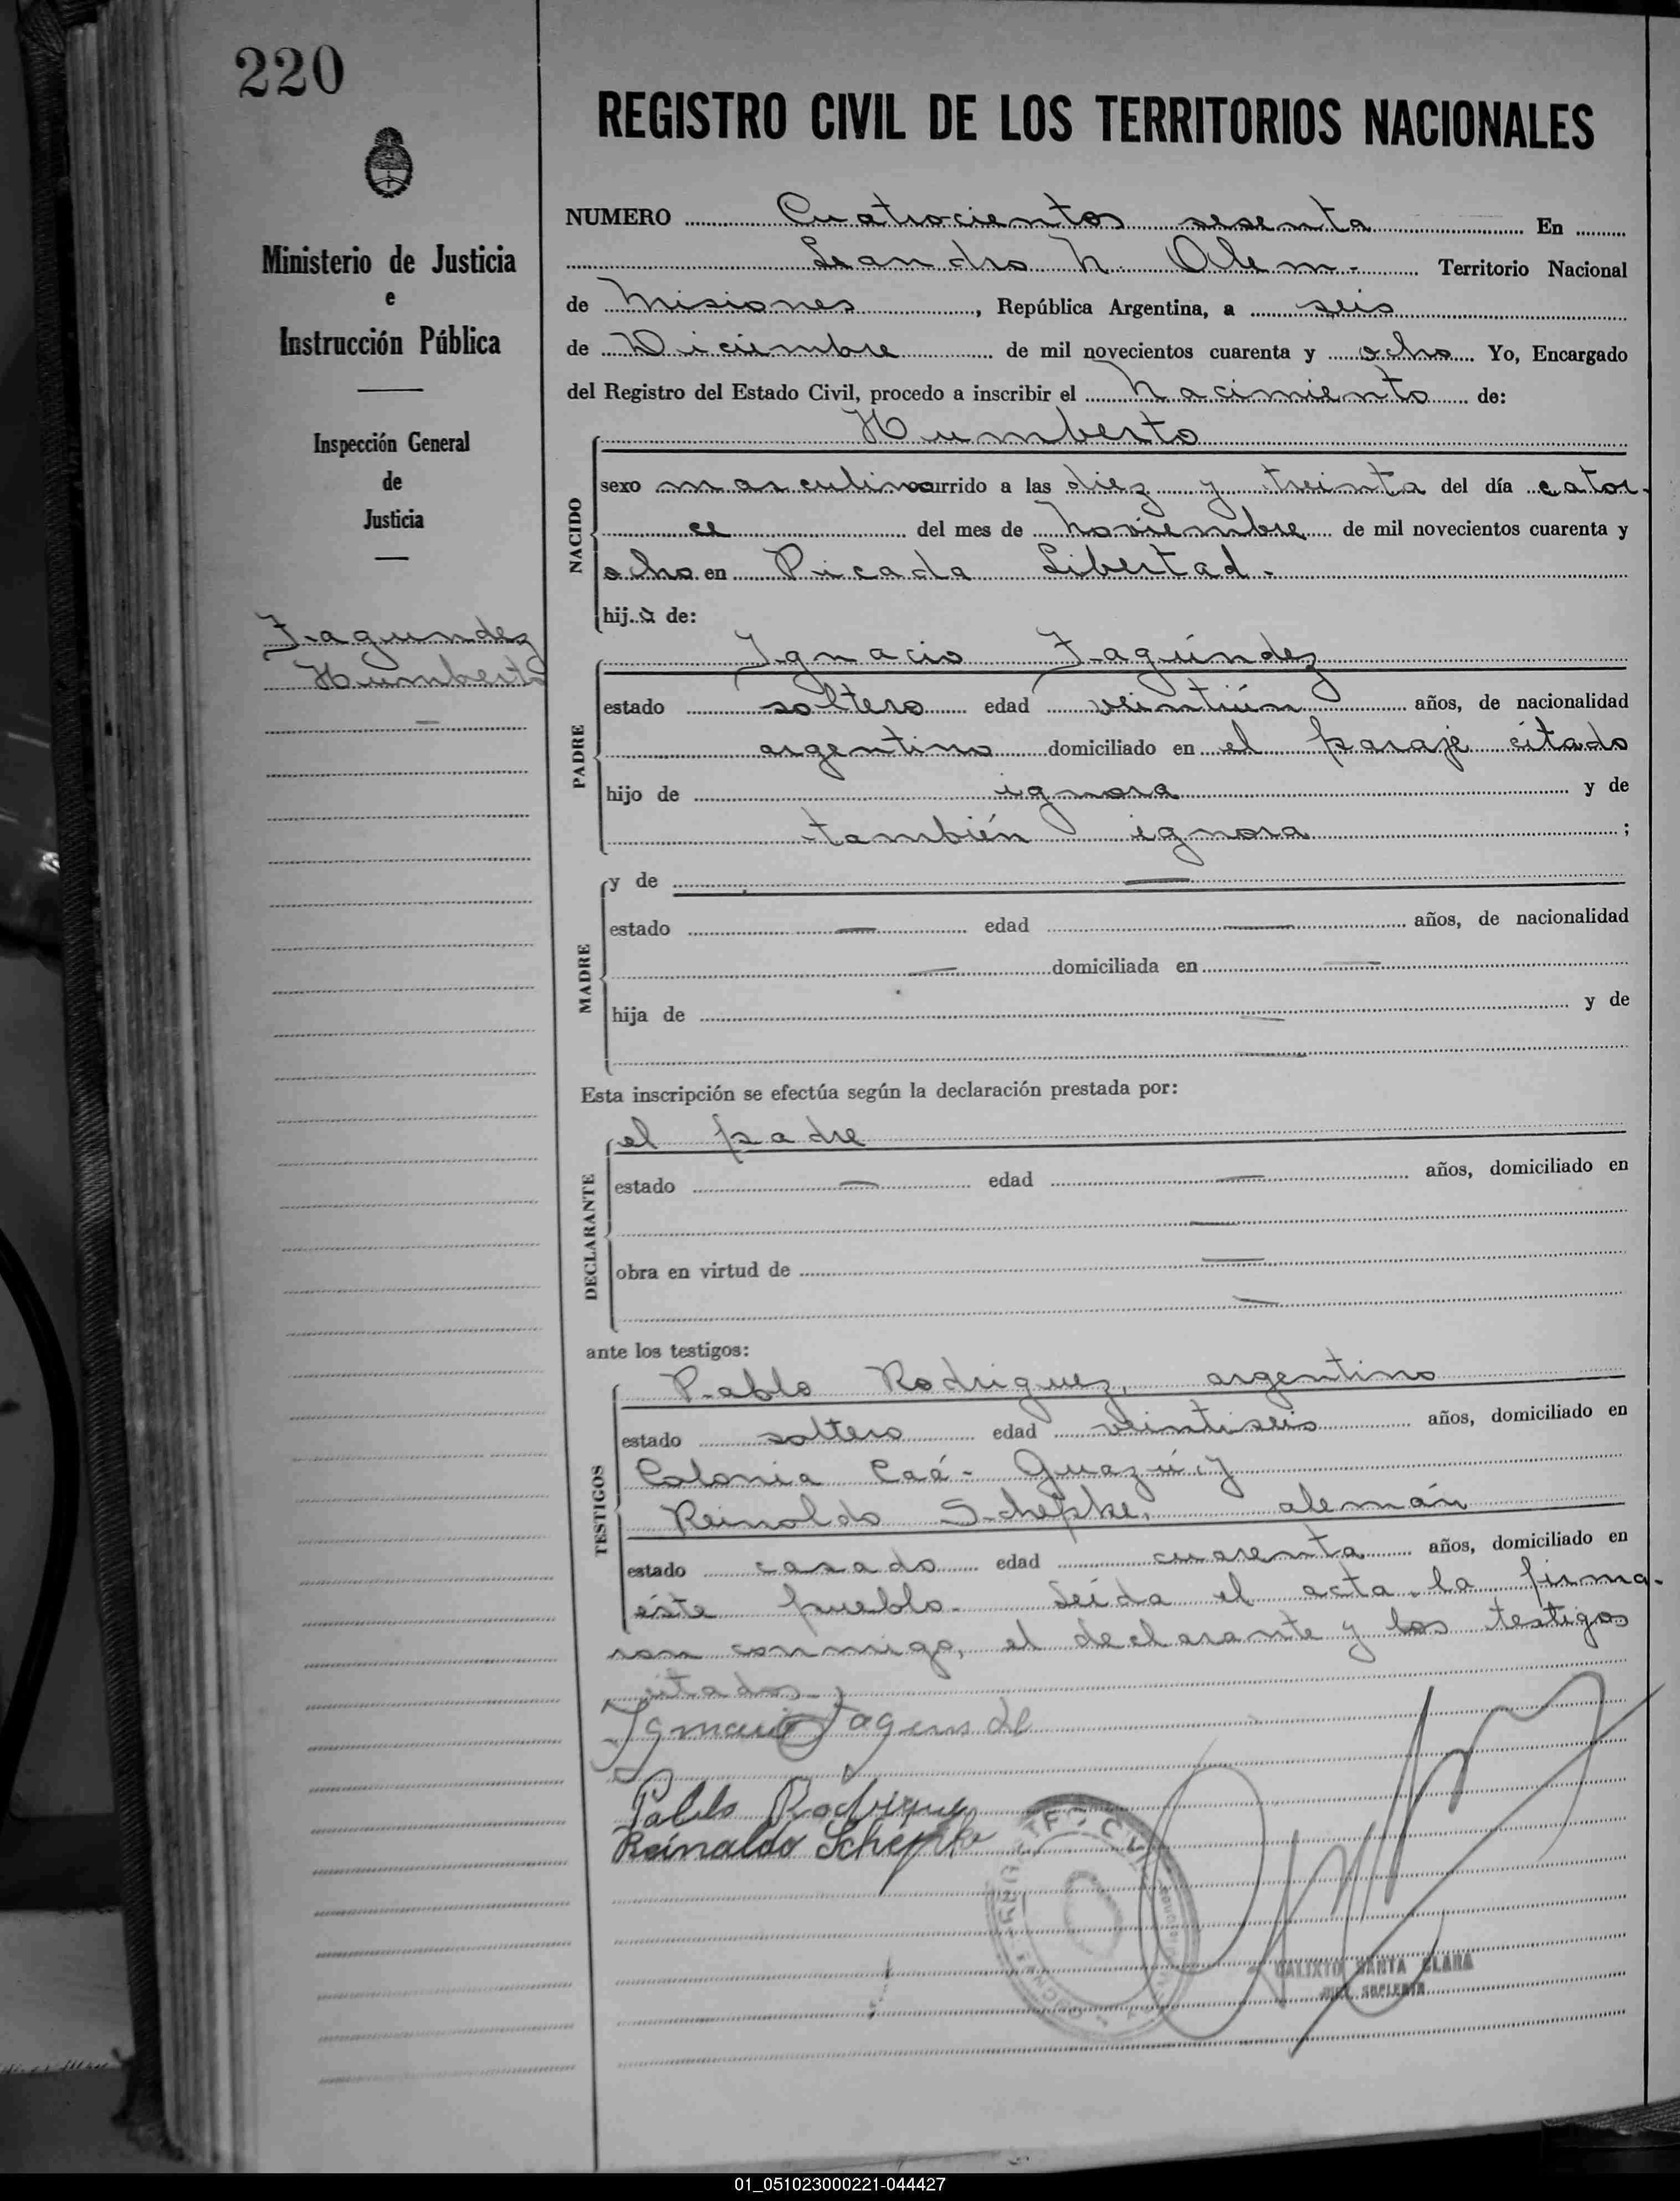 220
Ministerio de Justicia
e
Instrucción Pública
Inspección General
de
Justicia
Fagundez
Humberto
REGISTRO CIVIL DE LOS TERRITORIOS NACIONALES
NUMERO Cuatrocientos sesenta En
Leandro N. Alem.- Territorio Nacional
de Misiones, República Argentina, a seis
de Diciembre de mil novecientos cuarenta y ocho Yo, Encargado
del Registro del Estado Civil, procedo a inscribir el Nacimiento de:
Humberto
NACIDO
sexo masculino ocurrido a las diez y treinta del día cator-
ce del mes de Noviembre de mil novecientos cuarenta y
ocho en Picada Libertad.-
hijo de:
PADRE
Ignacio Fagúndez
estado soltero edad veintiún años, de nacionalidad
argentino domiciliado en el paraje citado
hijo de ignora y de
también ignora ;
MADRE
y de —
estado — edad — años, de nacionalidad
— domiciliada en —
hija de — y de
—
Esta inscripción se efectúa según la declaración prestada por:
DECLARANTE
el padre
estado — edad — años, domiciliado en
—
obra en virtud de —
—
ante los testigos:
TESTIGOS
Pablo Rodriguez, argentino
estado soltero edad veintiseis años, domiciliado en
Colonia Caá-Guazú y
Reinoldo Schepke, alemán
estado casado edad cuarenta años, domiciliado en
éste pueblo.- Leída el acta la firma-
ron conmigo, el declarante y los testigos
citados.-
Ignacio Fagunde
Pablo Rodriguez
Reinaldo Schepke
CALIXTO SANTA CLARA
JUEZ SUPLENTE
01_051023000221-044427